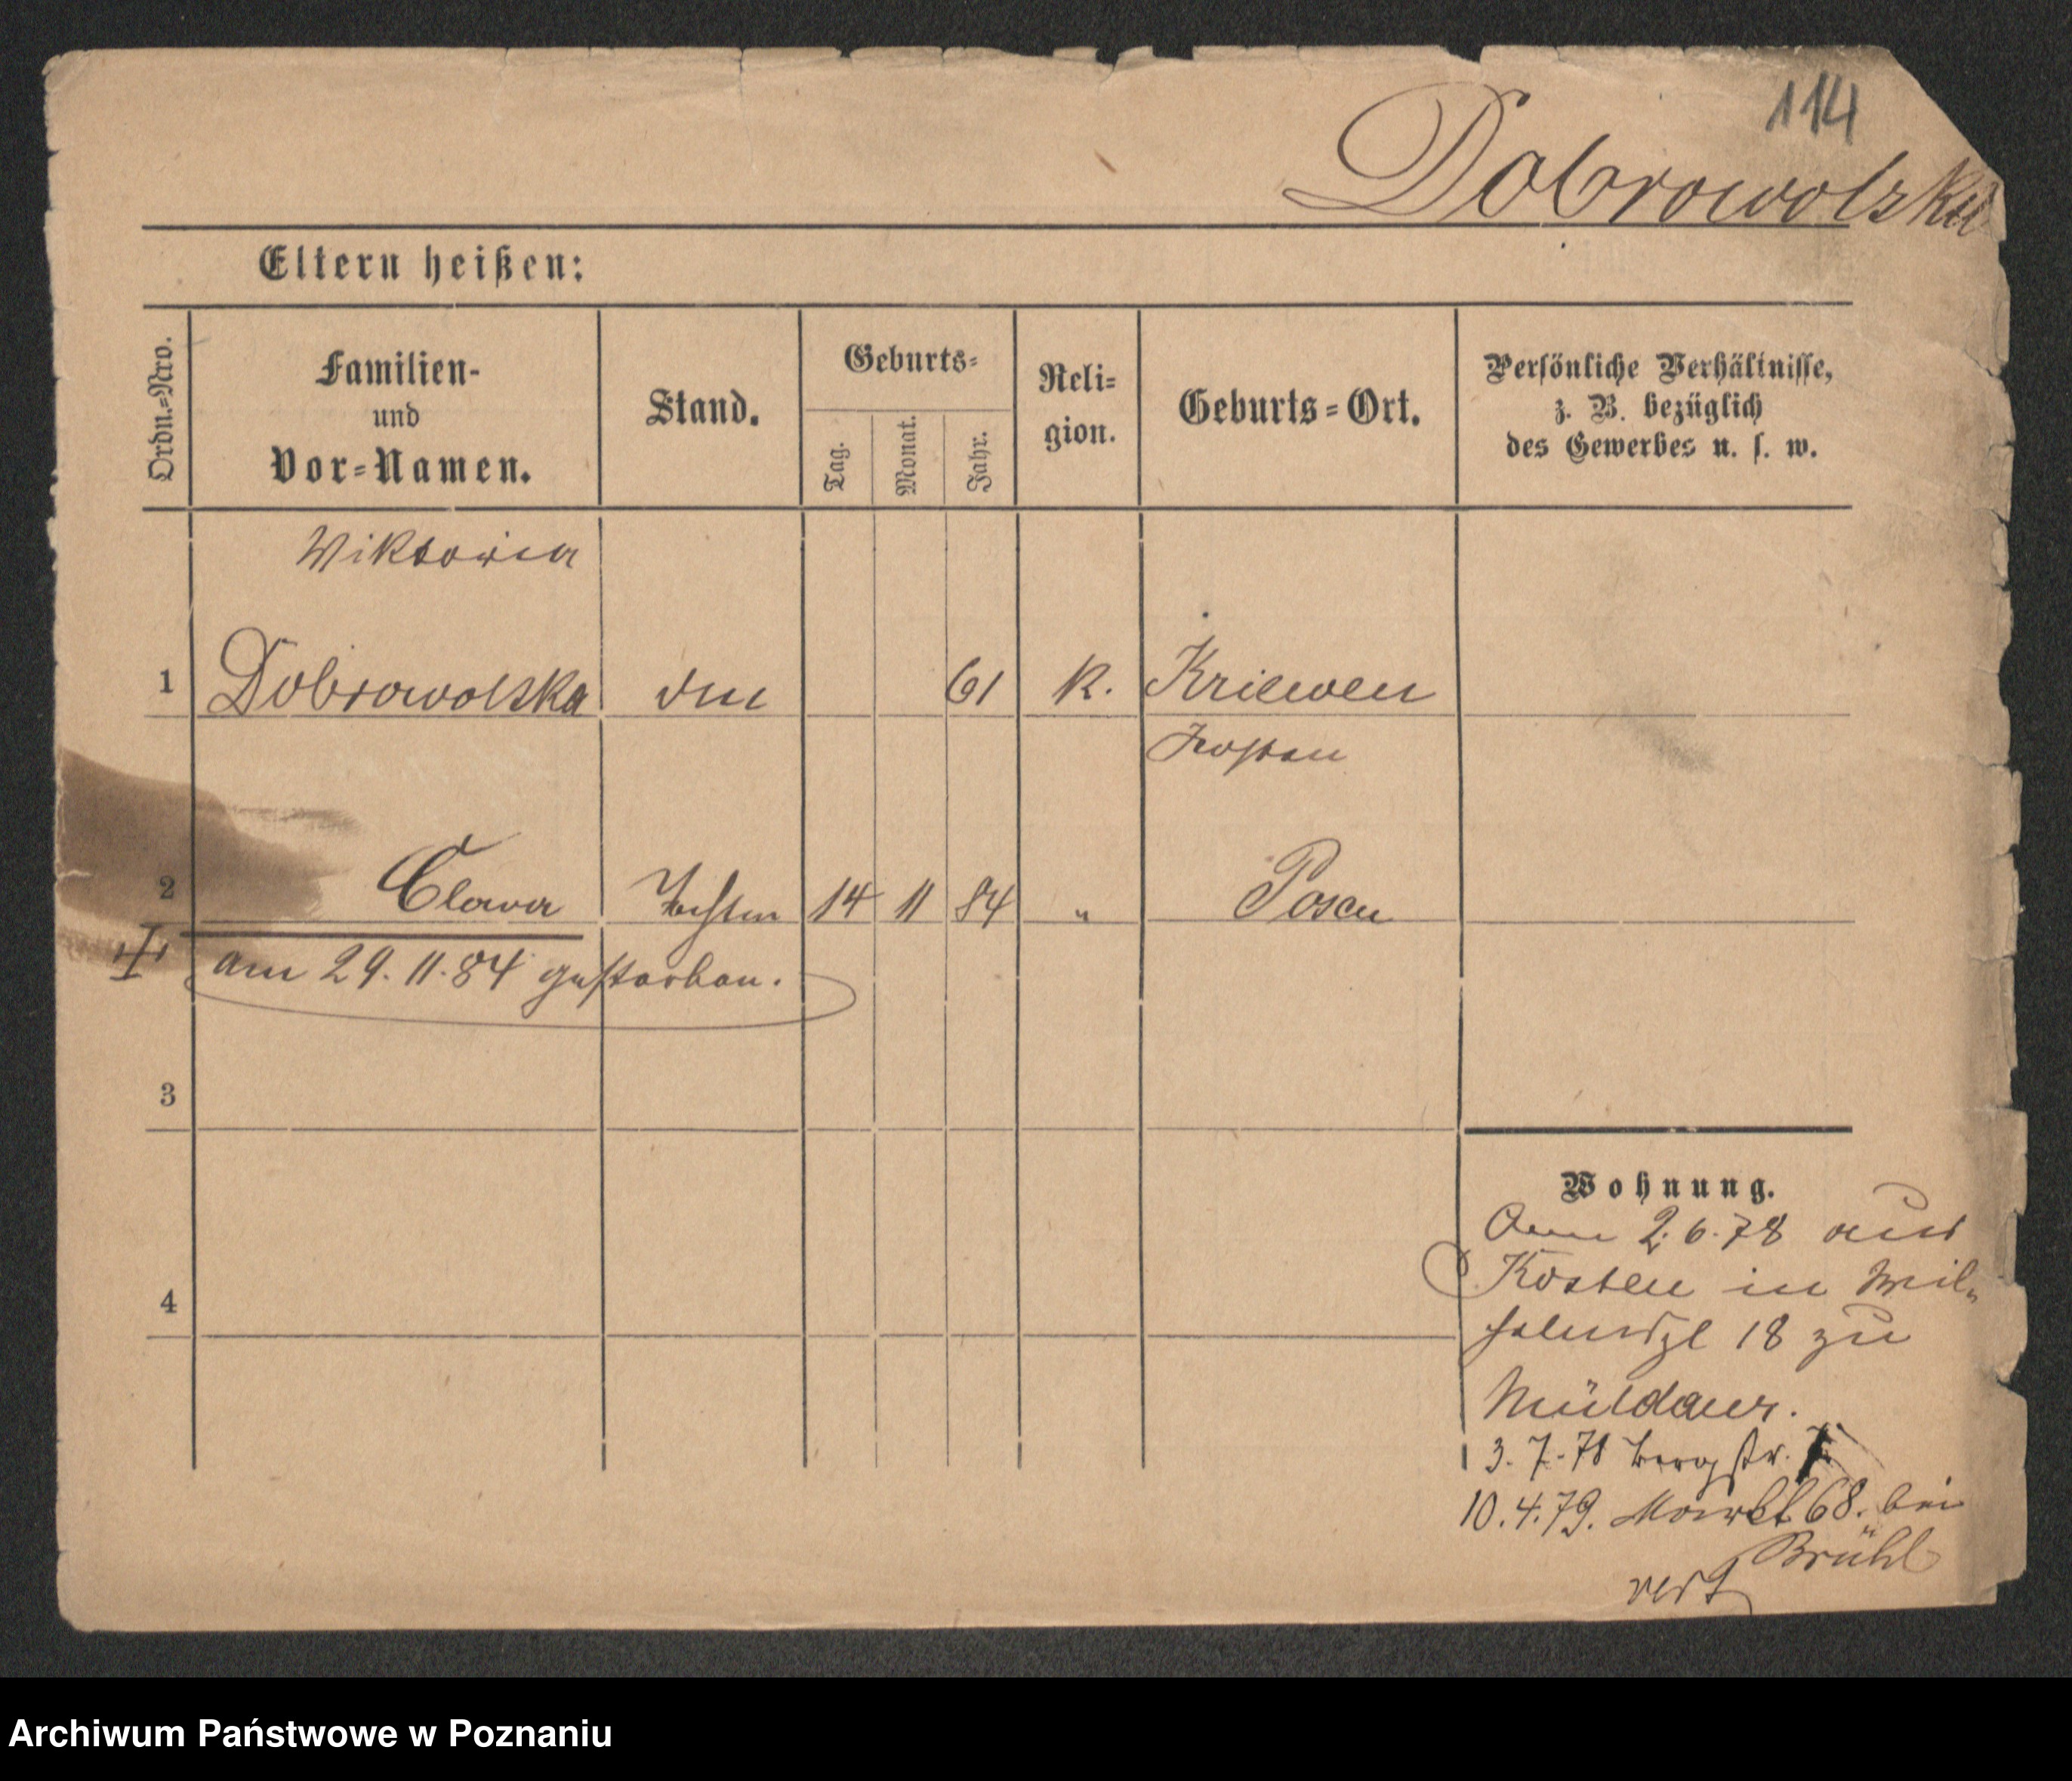 114
Dobrowolska
Eltern heißen:
Ordn.=Nro.
Familien-
und
Vor=Namen.
Stand.
Geburts=
Tag.
Monat.
Jahr.
Reli=
gion.
Geburts=Ort.
Persönliche Verhältnisse,
z. B. bezüglich
des Gewerbes u. s. w.
Wiktoria
1 Dobrowolska 61 K. Kriewen
Kosten
2 Clara Tochter 14 11 84 " Posen
am 29. 11. 84 gestorben.
3
4
Wohnung.
Am 2. 6. 78 aus
Kosten in Wil„
18 zu
Müldaur.
3. 7. 78 Bergstr.
10. 4. 79. Markt 68. bei
Brühl
Archiwum Państwowe w Poznaniu